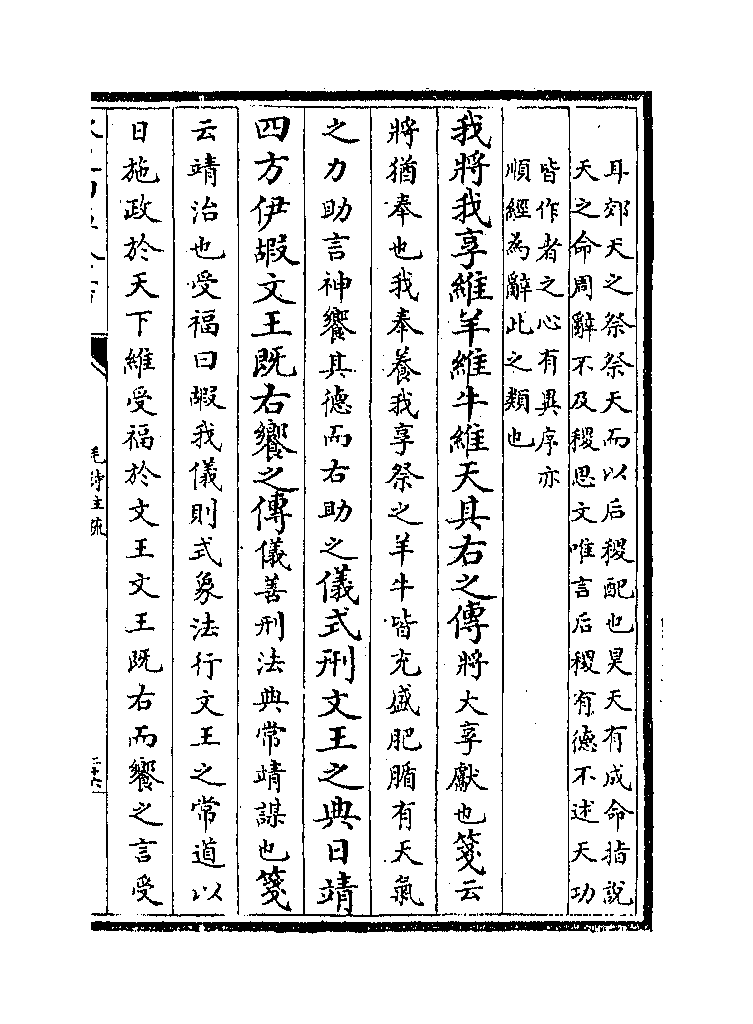 耳郊天之祭祭天而以后稷配也昊天有成命指說
天之命周辭不及稷思文唯言后稷有德不述天功
皆作者之心有異序亦
順經為辭此之類也
我將我享維羊維牛維天其右之傳將大享獻也箋云
將猶奉也我奉養我享祭之羊牛皆充盛肥腯有天氣
之力助言神饗其德而右助之儀式刑文王之典日靖
四方伊嘏文王既右饗之傳儀善刑法典常靖謀也箋
云靖治也受福曰嘏我儀則式象法行文王之常道以
日施政於天下維受福於文王文王既右而饗之言受
毛詩注疏